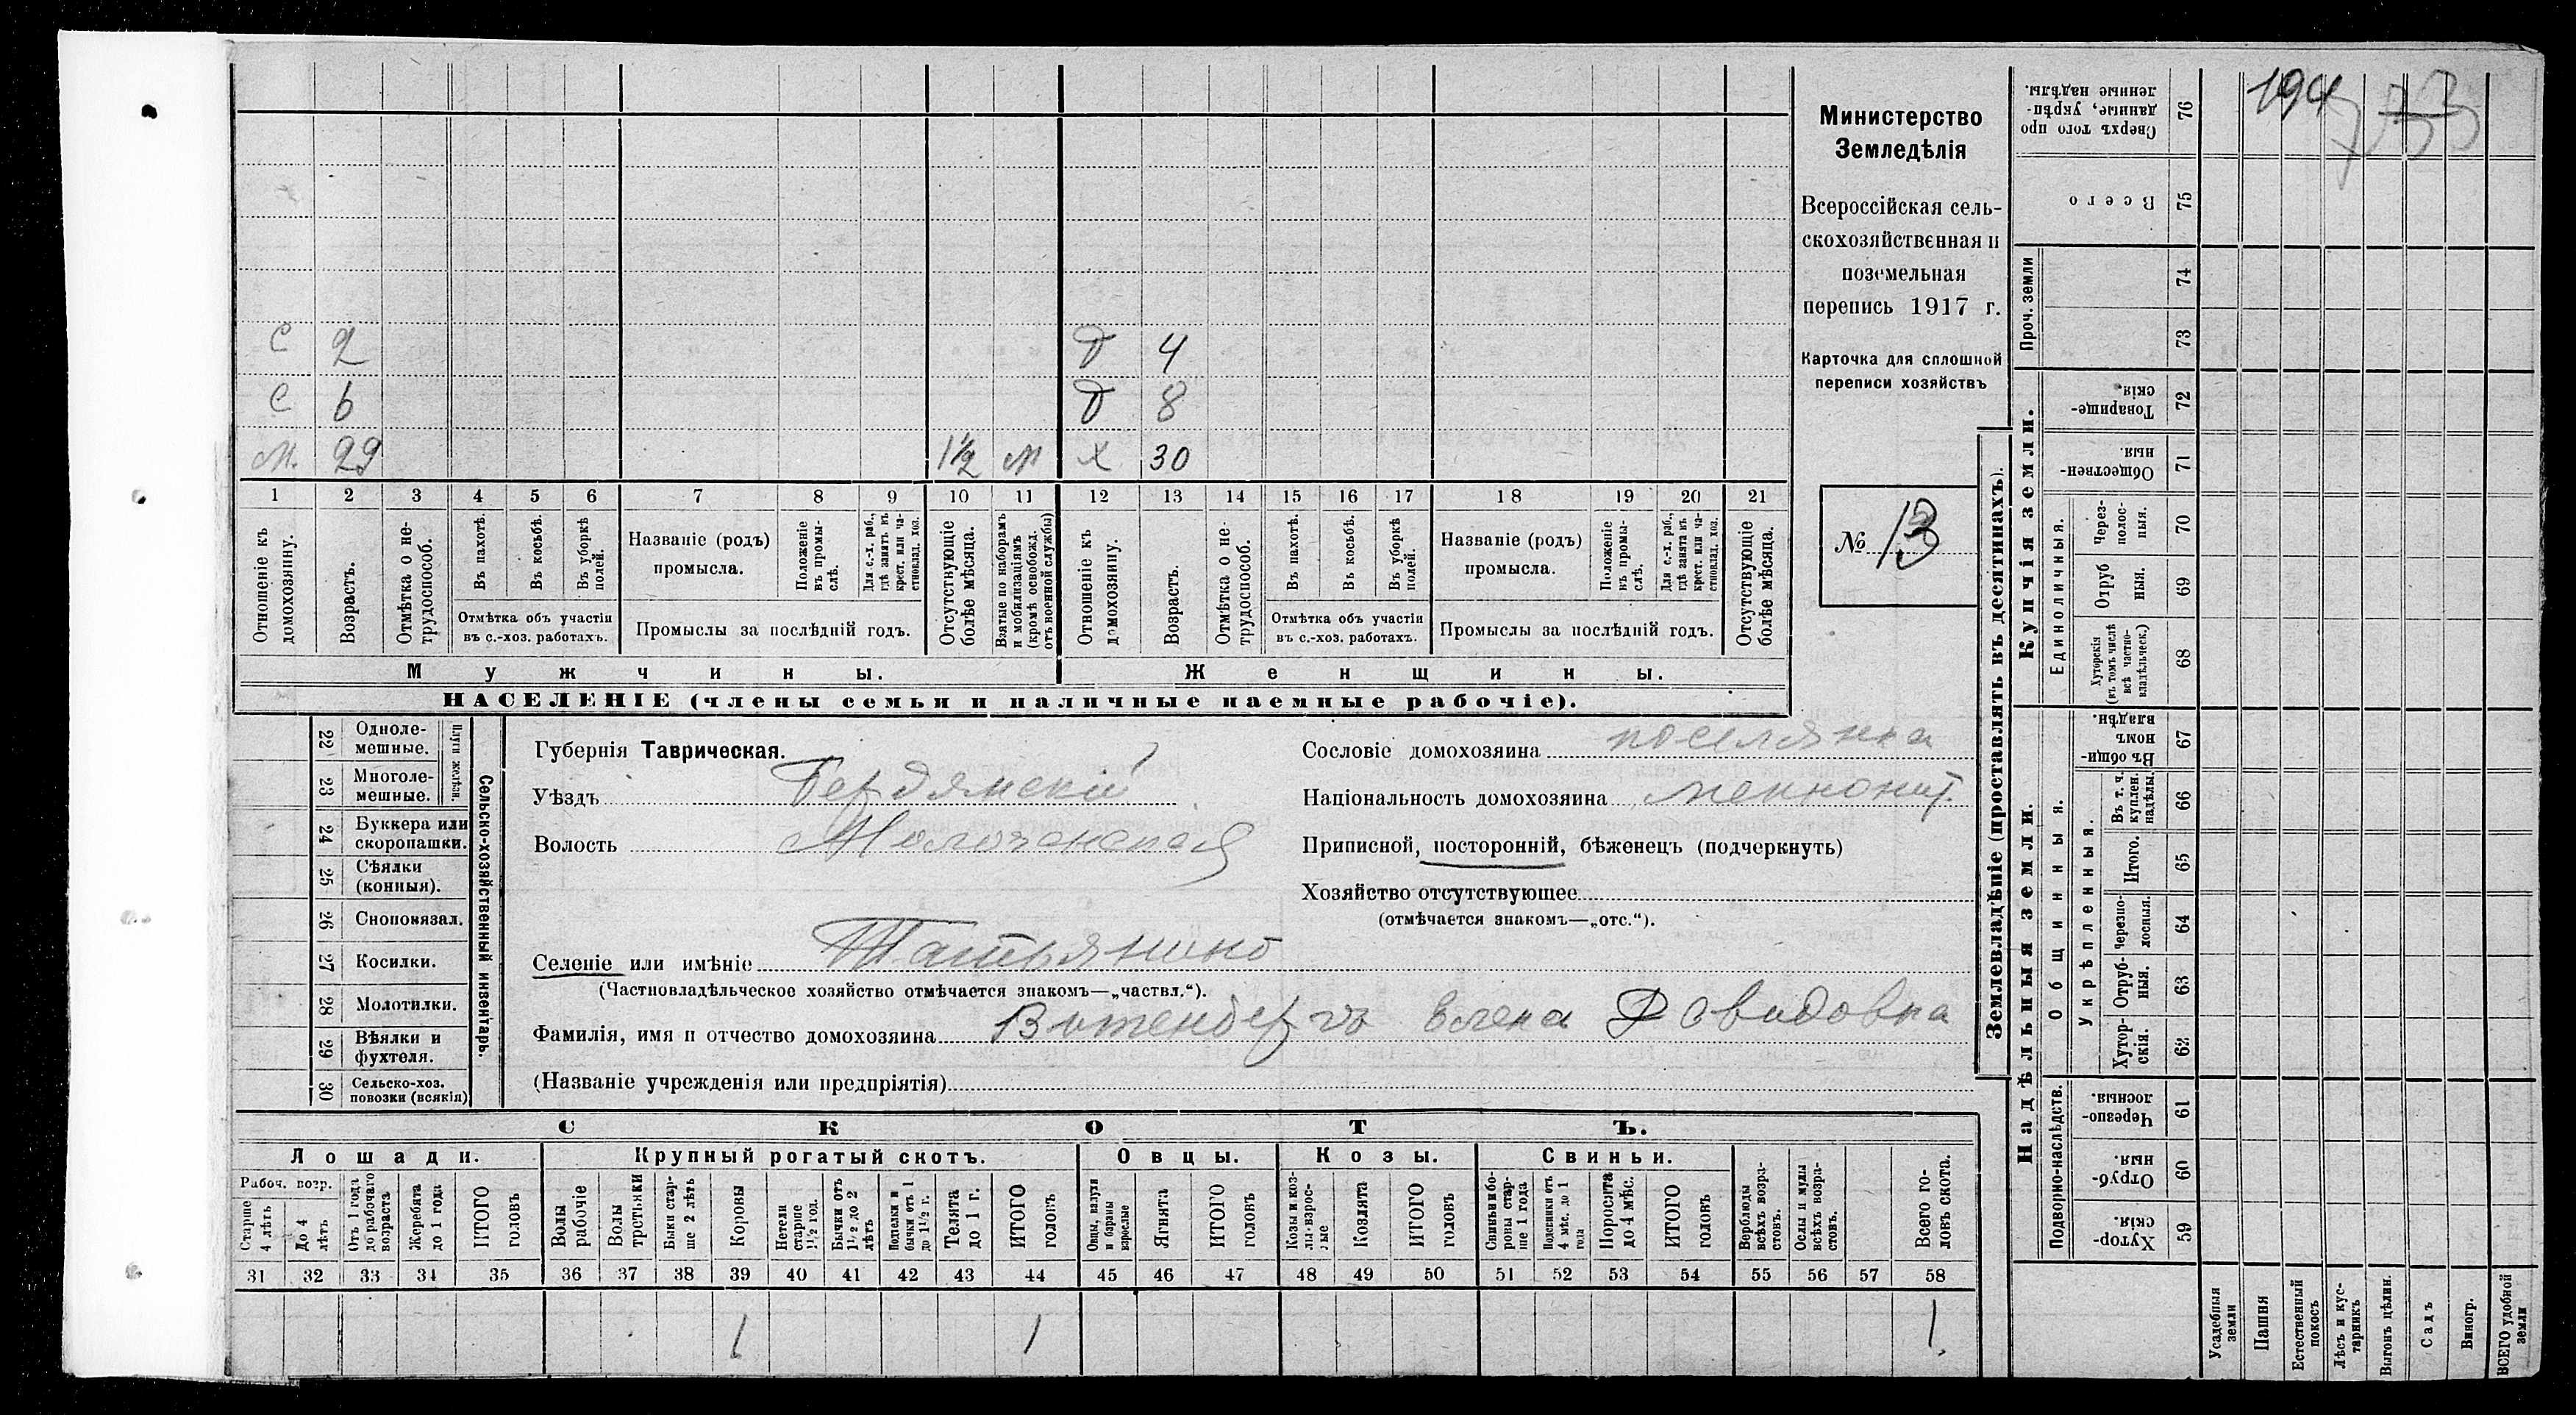 Министерство
Земледѣлія
Всероссійская сель-
скохозяйственная и
поземельная
перепись 1917 г.
Карточка для сплошной
переписи хозяйствъ
№ 13
194
С 2 Д 4
С 6 Д 8
М. 29 1½ М Х 30
1 2 3 4 5 6 7 8 9 10 11 12 13 14 15 16 17 18 19 20 21
Отношеніе къ домохозяину.
Возрастъ.
Отмѣтка о не-трудоспособ.
Въ пахотѣ.
Въ косьбѣ.
Въ уборкѣ полей.
Отмѣтка объ участіи
въ с.-хоз. работахъ.
Названіе (родъ)
промысла.
Положеніе въ промы-слѣ.
Для с.-х. раб., гдѣ занятъ въ крест. или ча-стновлад. хоз.
Промыслы за послѣдній годъ.
Отсутствующіе болѣе мѣсяца.
Взятые по наборамъ и мобилизаціямъ (кромѣ освобожд. отъ военной службы)
Отношеніе къ домохозяину.
Возрастъ.
Отмѣтка о не-трудоспособ.
Въ пахотѣ.
Въ косьбѣ.
Въ уборкѣ полей.
Отмѣтка объ участіи
въ с.-хоз. работахъ.
Названіе (родъ)
промысла.
Положеніе въ промы-слѣ.
Для с.-х. раб., гдѣ занята въ крест. или ча-стновлад. хоз.
Промыслы за послѣдній годъ.
Отсутствующіе болѣе мѣсяца.
Мужчины. Женщины.
НАСЕЛЕНІЕ (члены семьи и наличные наемные рабочіе).
22 Одноле-мешные.
23 Многоле-мешные.
Плуги желѣзн.
24 Буккера или скоропашки.
25 Сѣялки (конныя).
26 Сноповязал.
27 Косилки.
28 Молотилки.
29 Вѣялки и фухтеля.
30 Сельско-хоз. повозки (всякія)
Сельско-хозяйственный инвентарь.
Губернія Таврическая.
Уѣздъ Бердянскій
Волость Молочанская
Селеніе или имѣніе Татьянино
(Частновладѣльческое хозяйство отмѣчается знакомъ—„частвл.“).
Фамилія, имя и отчество домохозяина Витенбергъ Елена Давидовна
(Названіе учрежденія или предпріятія)
Сословіе домохозяина поселянка
Національность домохозяина меннонит.
Приписной, посторонній, бѣженецъ (подчеркнуть)
Хозяйство отсутствующее
(отмѣчается знакомъ—„отс.“).
СКОТЪ.
Лошади. Крупный рогатый скотъ. Овцы. Козы. Свиньи.
Рабоч. возр.
Старше 4 лѣтъ
До 4 лѣтъ
Отъ 1 года до рабочаго возраста
Жеребята до 1 года
ИТОГО головъ
Волы рабочіе
Волы
Быки стар-ше 2 лѣтъ
Коровы
Нетели старше 1½ год.
Бычки отъ 1½ до 2 лѣтъ
Подтелки и бычки отъ 1 до 1½ г.
Телята до 1 г.
ИТОГО головъ
Овцы, валухи и бараны взрослые
Ягнята
ИТОГО головъ
Козы и коз-лы взрос-лые
Козлята
ИТОГО головъ
Свиньи и бо-ровы стар-ше 1 года
Подсвинки отъ 4 мѣс. до 1 года
Поросята до 4 мѣс.
ИТОГО головъ
Верблюды всѣхъ возра-стовъ.
Ослы и мулы всѣхъ возра-стовъ.
Всего го-ловъ скота.
31 32 33 34 35 36 37 38 39 40 41 42 43 44 45 46 47 48 49 50 51 52 53 54 55 56 57 58
1 1 1
Землевладѣніе (проставлять въ десятинахъ).
Купчія земли.
Надѣльныя земли.
Проч. земли
Единоличныя.
Общинныя.
Укрѣпленныя.
Подворно-наслѣдств.
Сверхъ того про данные, укрѣп-ленные надѣлы. 76
Всего 75
74
73
Товарище-скія. 72
Обществен-ныя. 71
Через-полос-ныя. 70
Отруб ныя. 69
Хуторскія (въ томъ числѣ всѣ частно-владѣльческ.) 68
Въ общин номъ владѣн. 67
Въ т. ч. куплен. надѣлы. 66
Итого. 65
Черезпо-лосныя. 64
Отруб-ныя. 63
Хутор-скія. 62
Черезпо-лосныя. 61
Отруб-ныя. 60
Хутор-скія. 59
Усадебныя земли
Пашня
Естественный покосъ
Лѣсъ и кус-тарникъ
Выгонъ цѣлин.
Садъ
Виногр.
ВСЕГО удобной земли